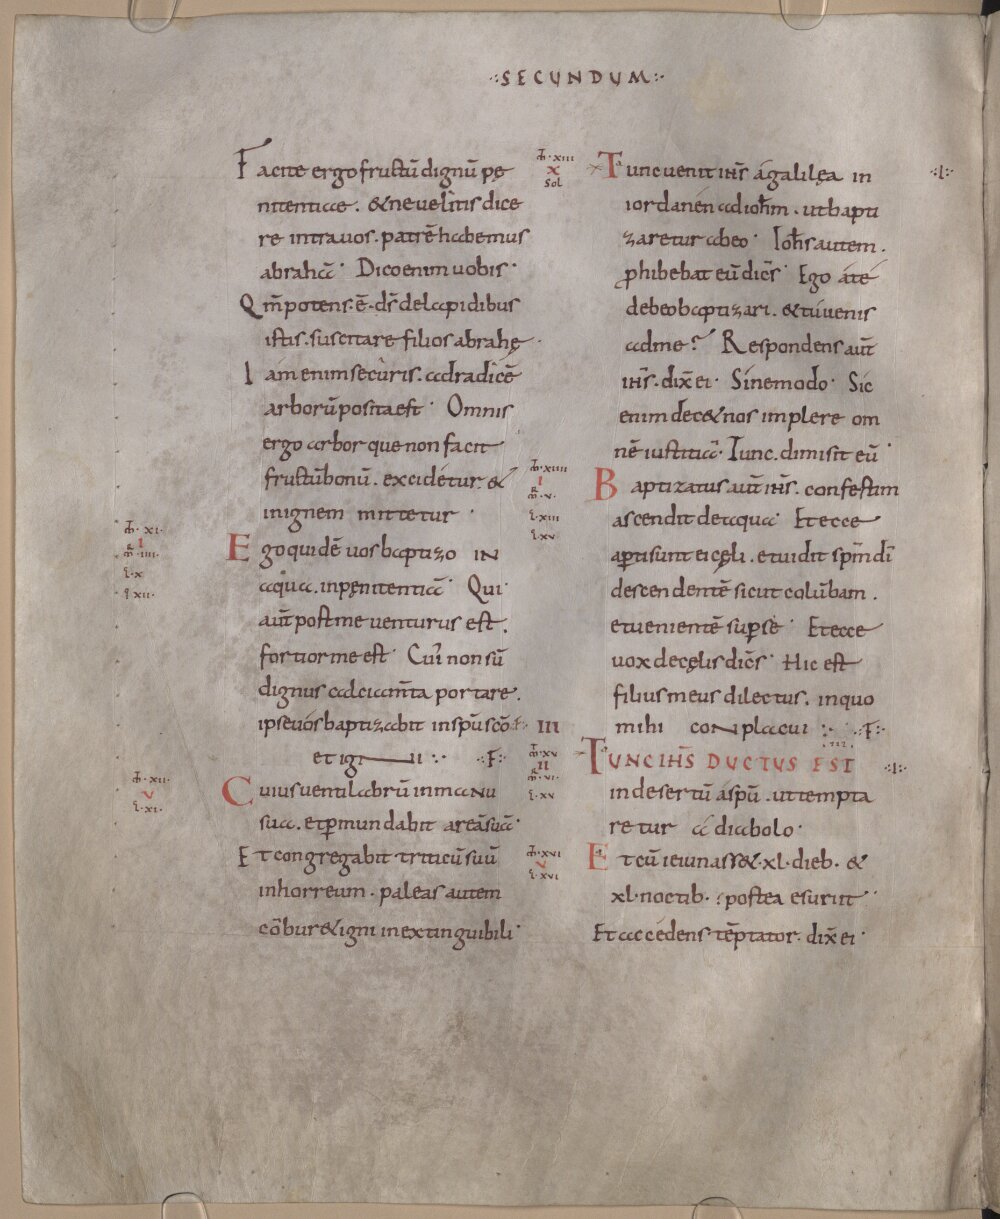 ·:SECUNDUM:·
Facite ergo fructū dignū pę
nitentiae. &ne velitis dice
re intra uos. patrē habemus
abrahā· Dico enim uobis·
Qm̄ potens·ē·ds̄ de lapidibus
istis. suscitare filios abrahę·
Iam enim securis. ad radicē
arborū posita est· Omnis
ergo arbor que non facit
fructū bonū. excidetur. &
in ignem mittetur·
Ego quidē uos baptizo IN
aqua. in pęnitentiā· Qui
aūt post me uenturus est.
fortior me est· Cui non sū
dignus calciam̄ta portare.
ipse uos baptizabit in spū scō
et igni:· ·F:
Cuius uentilabrū in manu
sua. et ꝑmundabit areā suā·
Et congregabit triticū suū
in horreum. paleas autem
cōbur& igni inextinguibili·
Tunc uenit ih̄s a galilęa in
iordanēn ad ioh̄m. ut bapti
zaretur ab eo· Ioh̄s autem.
ꝓhibebat eū dic̄s· Ego a te
debeo baptizari. & tu uenis
ad me? Respondens aūt
ih̄s. dix̄ ei· Sine modo· Sic
enim dec& nos implere om
nē iustitiā· Tunc. dimisit eū·
Baptizatus aūt ih̄s. confestim
ascendit de aqua· Et ecce
aꝑti sunt ei cęli. et uidit spm̄ dī
descendentē sicut colūbam.
et uenientē suꝑ se· Et ecce
uox de cęlis dic̄s· Hic est
filius meus dilectus. in quo
mihi conplacui:· ·F:·
TUNC IH̄S DUCTUS EST ·:I:·
in desertū a spū. ut tempta
retur a diabolo·
Et cū ieiunass&·xl·dieb. &
xl·noctib·postea esuriit·
Et accedens tēptator. dix̄ ei·
XI·
I
IIII·
X
XII·
XII·
V
XI·
XIII
X
Sol
·:I:·
XIIII
I
V·
XIII
XV
III
XV
II
VI·
XV
XVI
V
XVI